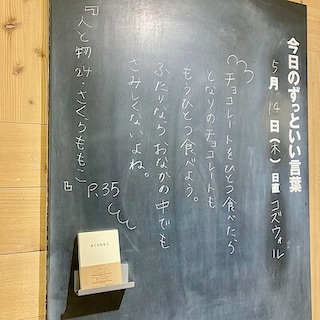 今日のずっといい言葉
5月14日(木) 日直 コズウォル
チョコレートをひとつ食べたら
となりのチョコレートも
もうひとつ食べよう。
ふたりなら おなかの中でも
さみしくないよね。
『人と物24 さくらももこ』
P.35